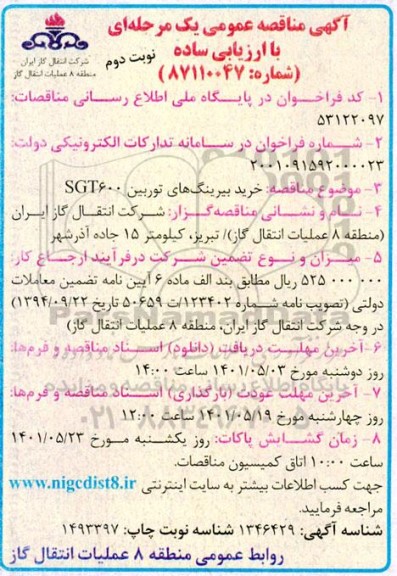 آگهی مناقصه عمومی یک مرحله‌ای
با ارزیابی ساده
نوبت دوم
(شماره: ۸۷۱۱۰۰۴۷)
شرکت انتقال گاز ایران
منطقه ۸ عملیات انتقال گاز
۱- کد فراخوان در پایگاه ملی اطلاع رسانی مناقصات:
۵۳۱۲۲۰۹۷
۲- شماره فراخوان در سامانه تدارکات الکترونیکی دولت:
۲۰۰۱۰۹۱۵۹۲۰۰۰۰۲۳
۳- موضوع مناقصه: خرید بیرینگ‌های توربین SGT۶۰۰
۴- نام و نشانی مناقصه‌گزار: شرکت انتقال گاز ایران
(منطقه ۸ عملیات انتقال گاز)/ تبریز، کیلومتر ۱۵ جاده آذرشهر
۵- میزان و نوع تضمین شرکت در فرآیند ارجاع کار:
۵۲۵ ۰۰۰ ۰۰۰ ریال مطابق بند الف ماده ۶ آیین نامه تضمین معاملات
دولتی (تصویب نامه شماره ۱۲۳۴۰۲/ت ۵۰۶۵۹ تاریخ ۱۳۹۴/۰۹/۲۲)
در وجه شرکت انتقال گاز ایران، منطقه ۸ عملیات انتقال گاز)
۶- آخرین مهلت دریافت (دانلود) اسناد مناقصه و فرم‌ها:
روز دوشنبه مورخ ۱۴۰۱/۰۵/۰۳ ساعت ۱۴:۰۰
۷- آخرین مهلت عودت (بارگذاری) اسناد مناقصه و فرم‌ها:
روز چهارشنبه مورخ ۱۴۰۱/۰۵/۱۹ ساعت ۱۲:۰۰
۸- زمان گشایش پاکات: روز یکشنبه مورخ ۱۴۰۱/۰۵/۲۳
ساعت ۱۰:۰۰ اتاق کمیسیون مناقصات.
جهت کسب اطلاعات بیشتر به سایت اینترنتی www.nigcdist8.ir
مراجعه فرمایید.
شناسه آگهی: ۱۳۴۶۴۲۹ شناسه نوبت چاپ: ۱۴۹۳۳۹۷
روابط عمومی منطقه ۸ عملیات انتقال گاز